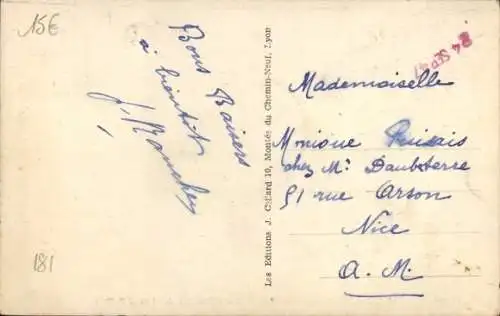 15€
Bons Baisers
à bientôt
J.
181
Les Editions J. Cellard 10, Montée du Chemin-Neuf, Lyon
24 SEP
Mademoiselle
Monique
chez Mr Daubeterre
51 rue Arson
Nice
A. M.